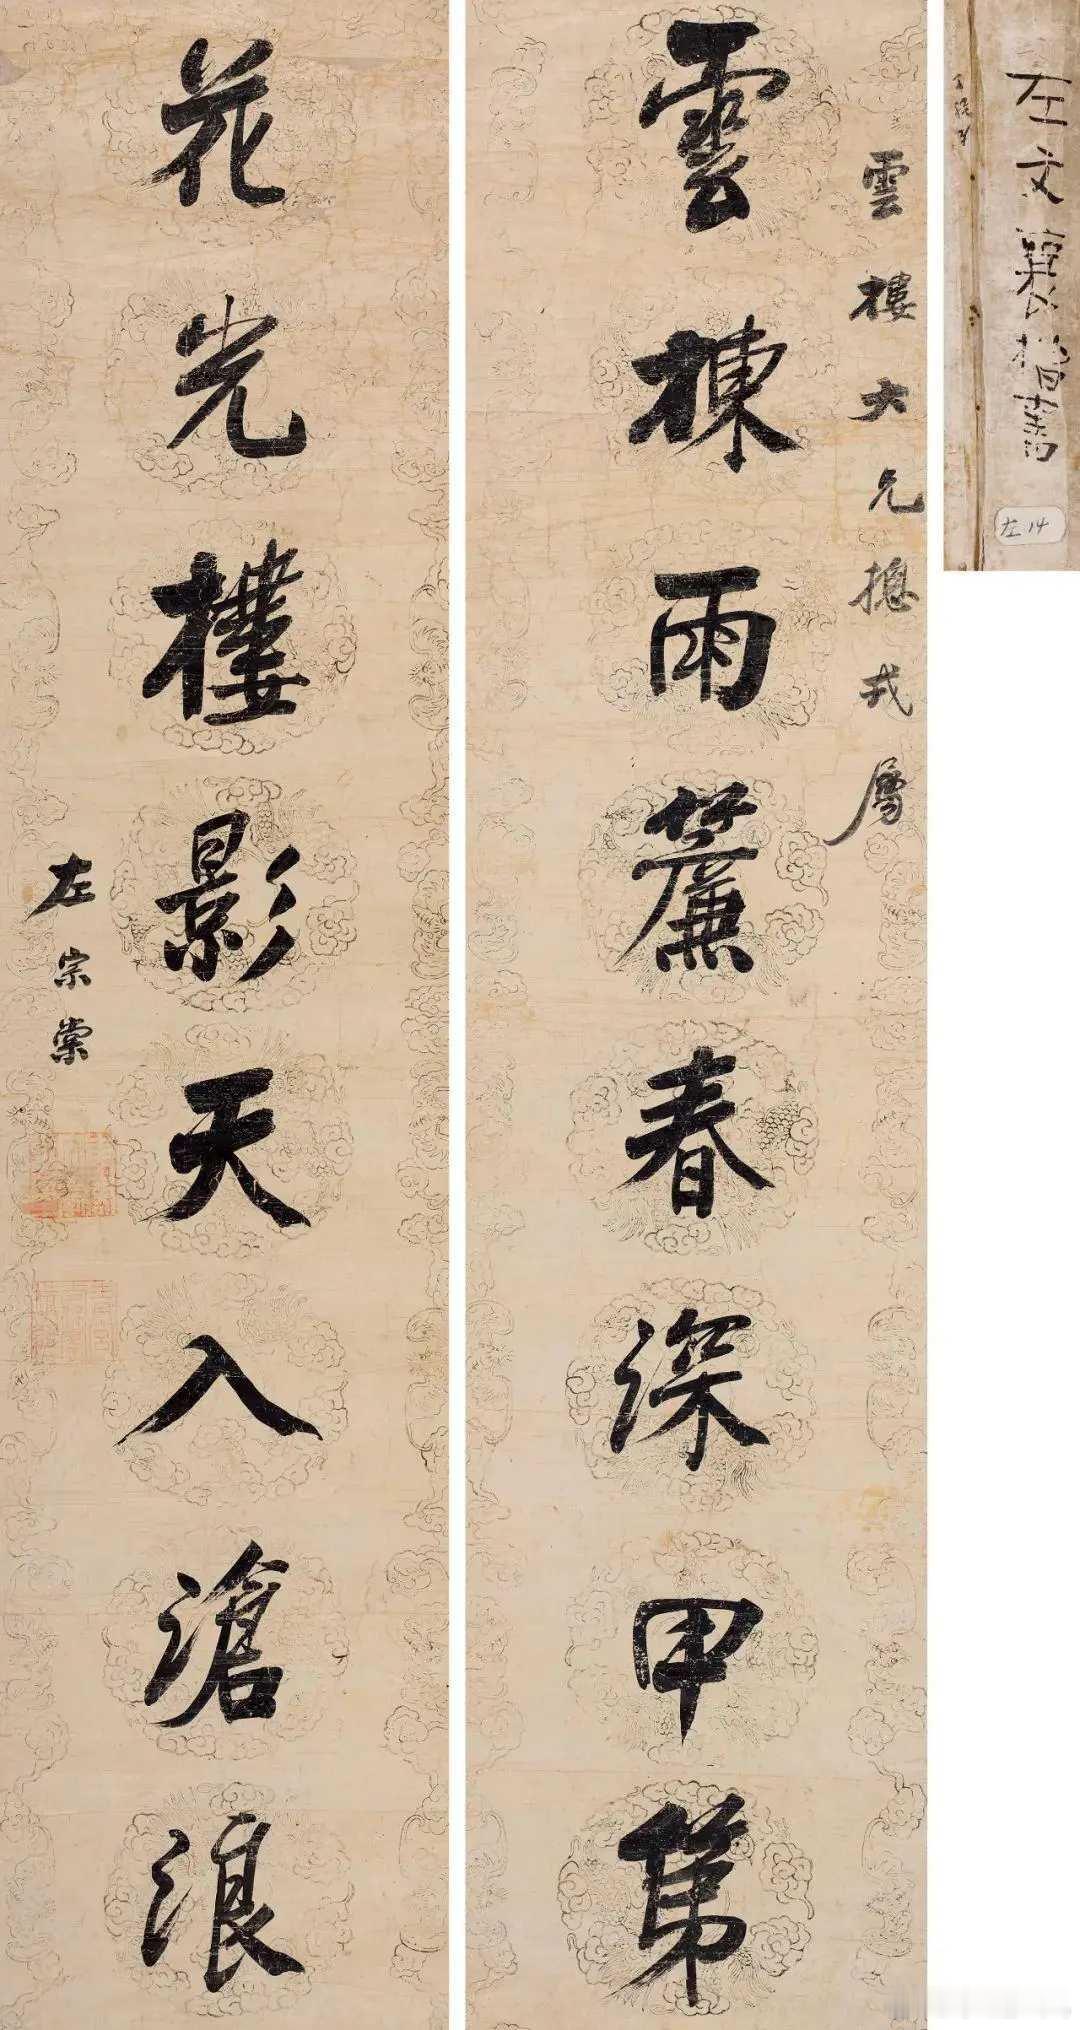 左文襄楷書
左14
雲樓大兄摠戎屬
雲棟雨簾春深甲第
花光樓影天入滄浪
左宗棠